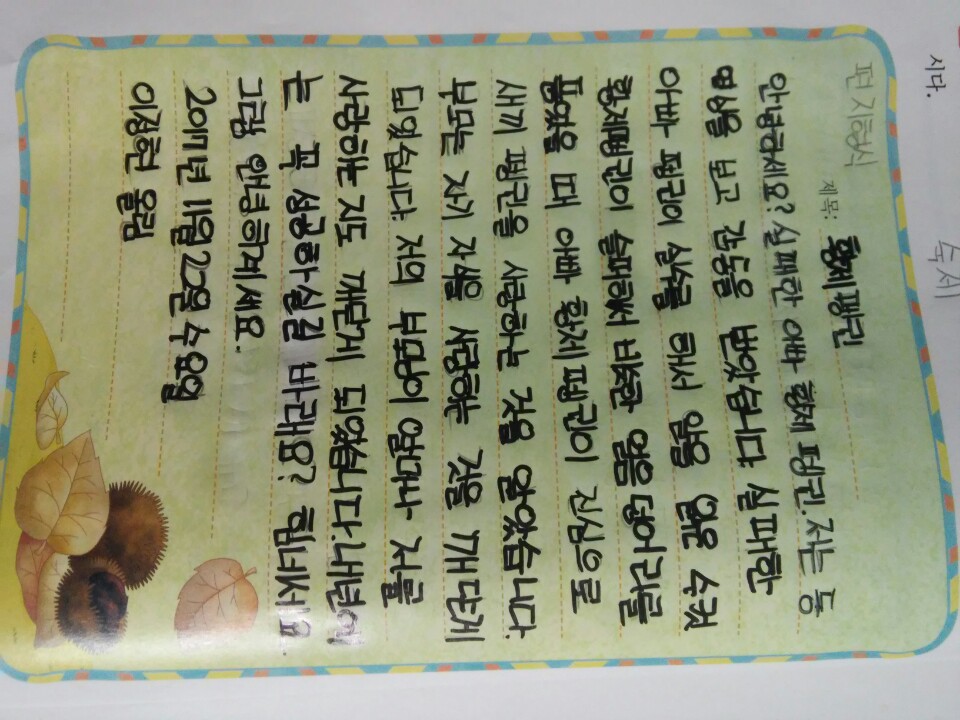 시다.
독서
편지형식
제목: 황제펭귄
안녕하세요? 실패한 아빠 황제 펭귄. 저는 동
영상을 보고 감동을 받았습니다 실패한
아빠 펭귄이 실수를 해서 알을 잃은 수컷
황제펭귄이 슬퍼해서 비슷한 얼음 덩어리를
품었을 때 아빠 황제 펭귄이 진심으로
새끼 펭귄을 사랑하는 것을 알았습니다.
부모는 자기 자식을 사랑하는 것을 깨닫게
되었습니다 저의 부모님이 얼마나 저를
사랑하는지도 깨닫게 되었습니다. 내년에
는 꼭 성공하실길 바래요? 힘내세요.
그럼 안녕히계세요.
2017년 11월20일 수요일
이정현 올림